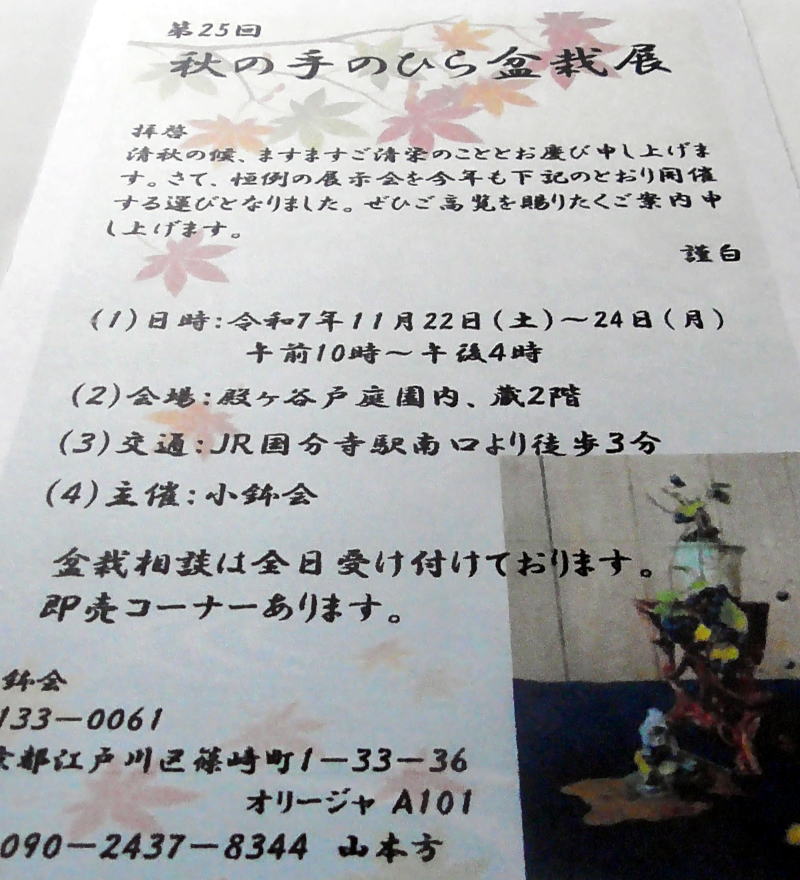 第25回
秋の手のひら盆栽展
拝啓
清秋の候、ますますご清栄のこととお慶び申し上げま
す。さて、恒例の展示会を今年も下記のとおり開催
する運びとなりました。ぜひご高覧を賜りたくご案内申
し上げます。
謹白
(1)日時:令和7年11月22日(土)～24日(月)
午前10時～午後4時
(2)会場:殿ヶ谷戸庭園内、蔵2階
(3)交通:JR国分寺駅南口より徒歩3分
(4)主催:小鉢会
盆栽相談は全日受け付けております。
即売コーナーあります。
鉢会
133－0061
京都江戸川区篠崎町1－33－36
オリージャ A101
090－2437－8344 山本方